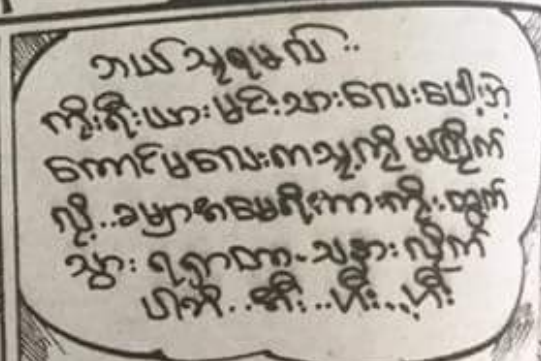 ဘယ်သူရမလဲ..
ကိုးရီးယားမင်းသားလေးပေါ့ဘဲ
ကောင်မလေးကသူ့ကိုမကြိုက်
လို့..ခမျာအမေရိကားကိုထွက်
သွားရရှာတာ..သနားလိုက်
ပါဘိ..အီး..ဟီး..ဟီး